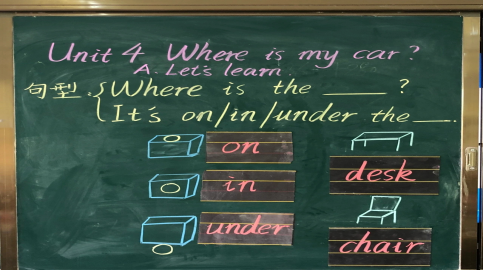 Unit 4 Where is my car?
A. Let's learn.
句型. Where is the ____ ?
It's on/in/under the ___.
on
desk
in
under
chair